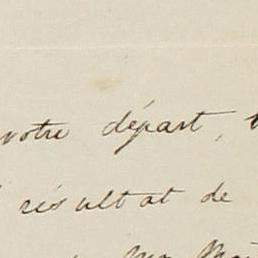 votre départ,
résultat de